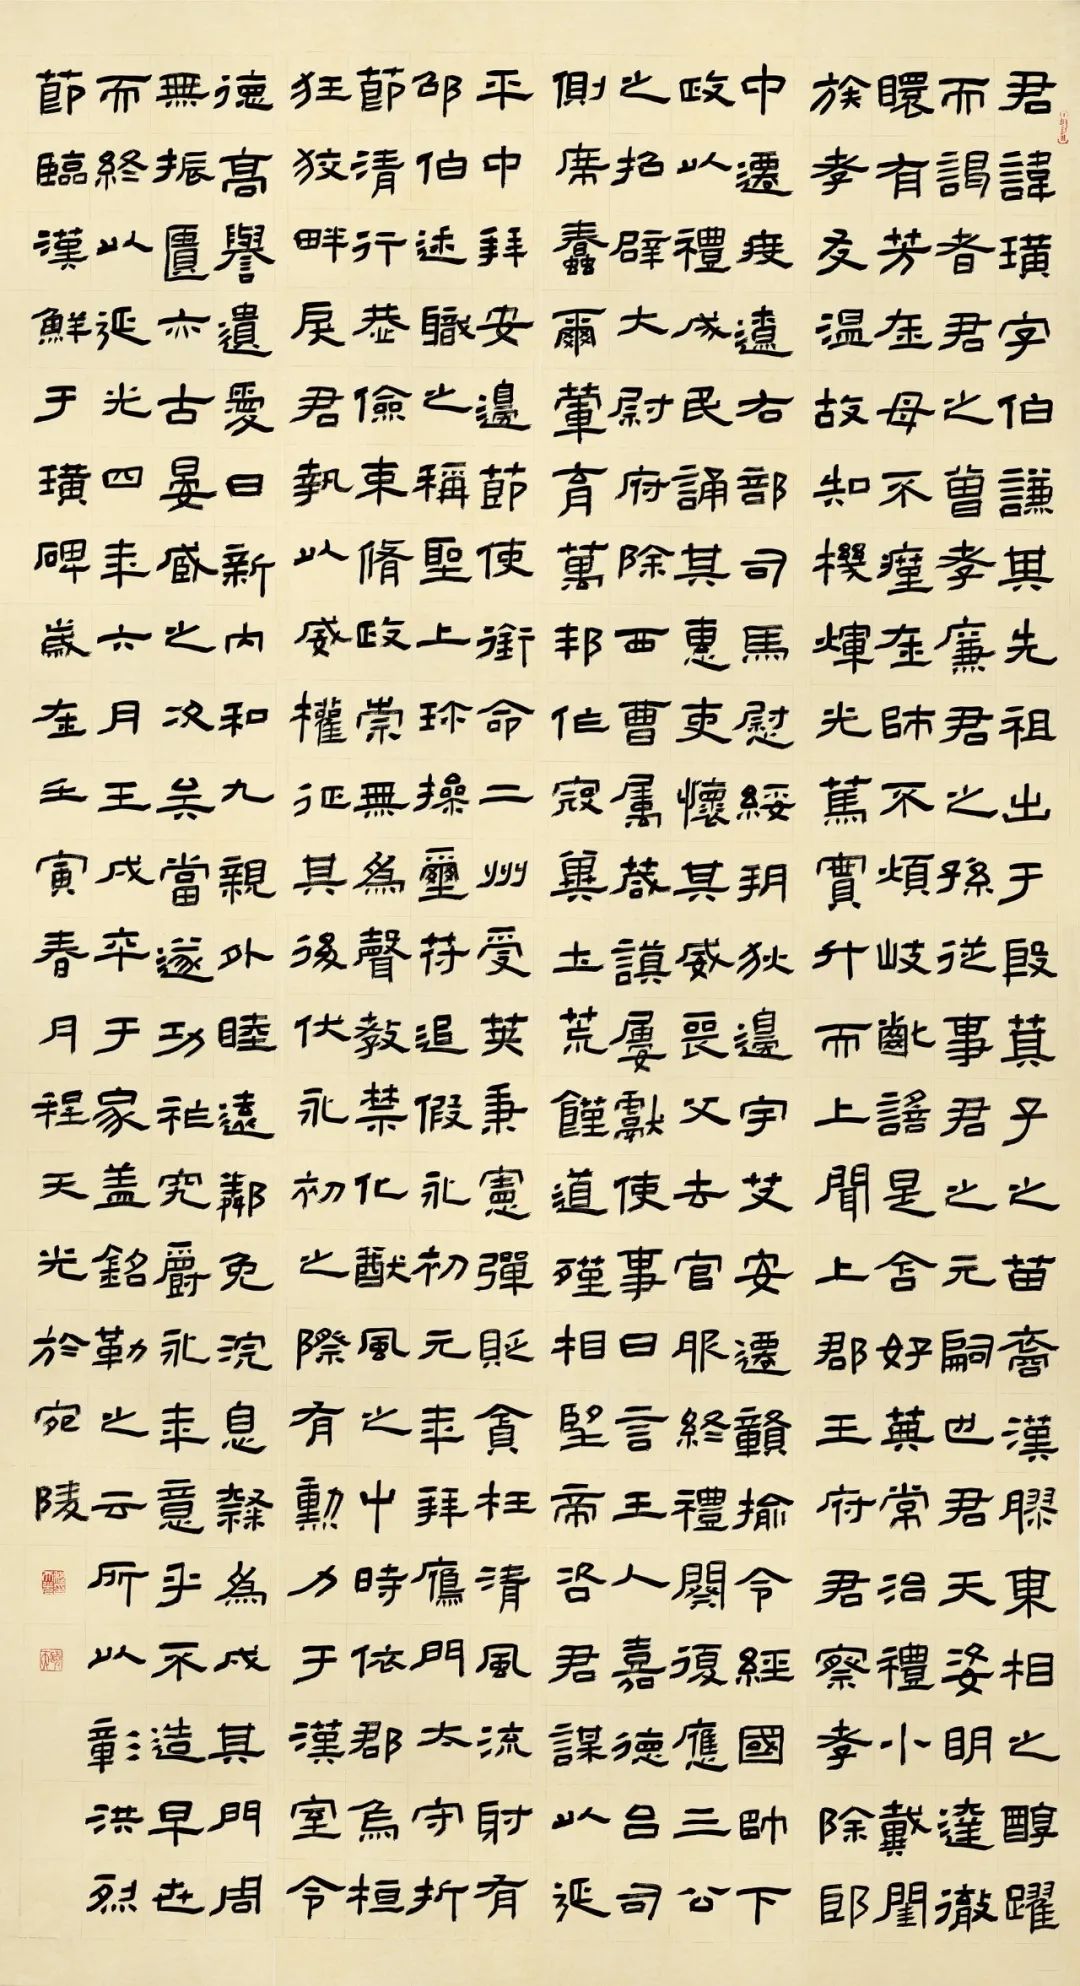 君諱璜字伯謙其先祖出于殷箕子之苗裔漢膠東相之醇躍
而謁者君之曾孝廉君之孫從事君之元嗣也君天姿明達徹
瞏有芳在母不瘽在師不煩岐齔謠是含好英常治禮小戴閨
族孝友温故知機煇光篤實升而上聞上郡王府君察孝除郎
中遷度遼右部司馬慰綏朔狄邊宇艾安遷贛揄令經國帥下
政以禮成民誦其惠吏懷其威喪父去官服終禮闋復應三公
之招辟大尉府除西曹屬謨屢獻使事日言王人嘉德吕司
側席蠢爾葷育萬邦作寇冀土荒饉道殣相望帝咨君謀以延
平中拜安邊節使銜命二州受莢秉憲彈貶貪枉清風流射有
邵伯述職之稱聖上珍操璽符追假永初元年拜鴈門太守折
節清行恭儉束脩政崇無爲聲教禁化猷風之中時依郡烏桓
狂狡畔戾君執以威權征其後伏永初之際有勳力于漢室令
德高譽遺愛日新内和九親外睦遠鄰免浣息隸爲成其門周
無振匱亦古晏臧之次矣當遂功祚究爵永年意乎不造早世
而終以延光四年六月壬戌卒于家蓋銘勒之云所以彰洪烈
節臨漢鮮于璜碑歲在壬寅春月程天光於宛陵